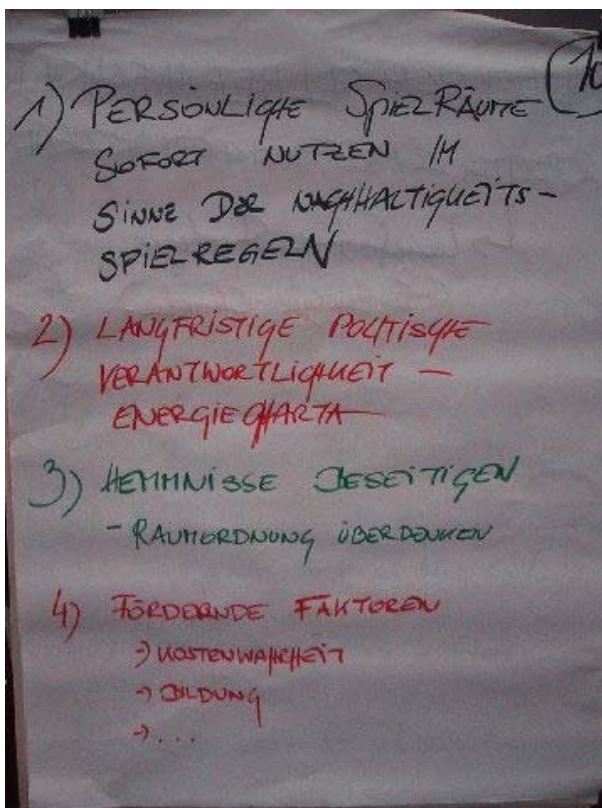 10
1) PERSÖNLICHE SPIELRÄUME
SOFORT NUTZEN IM
SINNE DER NACHHALTIGKEITS-
SPIELREGELN
2) LANGFRISTIGE POLITISCHE
VERANTWORTLICHKEIT –
ENERGIECHARTA
3) HEMMNISSE BESEITIGEN
- RAUMORDNUNG ÜBERDENKEN
4) FÖRDERNDE FAKTOREN
-> KOSTENWAHRHEIT
-> BILDUNG
-> ...